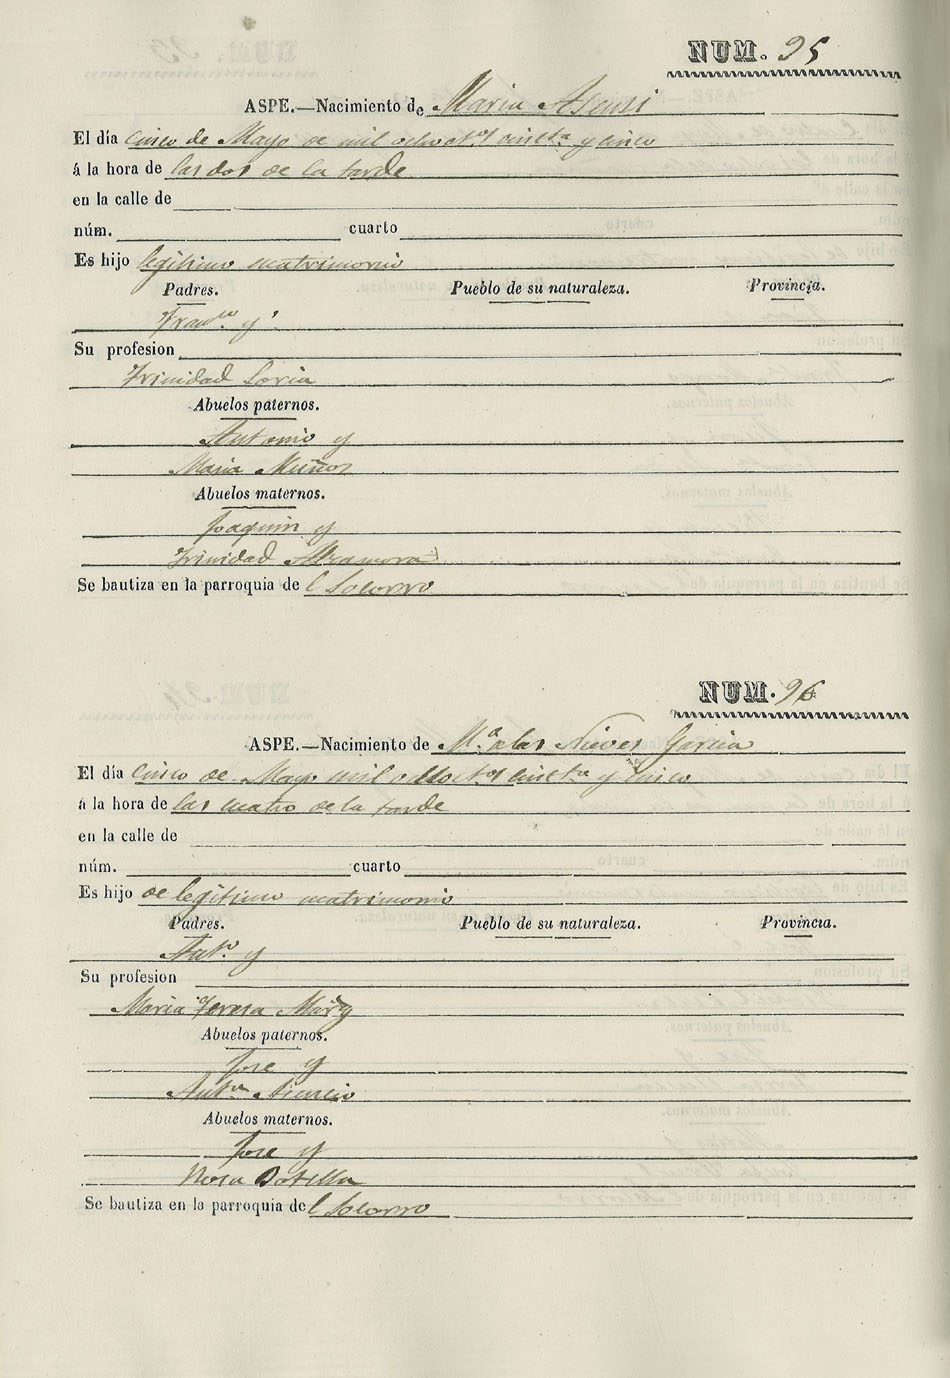 NUM. 95
ASPE.—Nacimiento de Maria Asensi
El día cinco de Mayo de mil ochoctos cincta y cinco
á la hora de las dos de la tarde
en la calle de
núm. cuarto
Es hijo legitimo matrimonio
Padres. Pueblo de su naturaleza. Provincia.
Franco y
Su profesion
Trinidad Soria
Abuelos paternos.
Antonio y
Maria Muñoz
Abuelos maternos.
Joaquin y
Trinidad
Se bautiza en la parroquia de l Socorro
NUM. 96
ASPE.—Nacimiento de Ma. de las Nieves Garcia
El día cinco de Mayo mil ochoctos cincta y cinco
á la hora de las cuatro de la tarde
en la calle de
núm. cuarto
Es hijo de legitimo matrimonio
Padres. Pueblo de su naturaleza. Provincia.
Anto. y
Su profesion
Maria Teresa
Abuelos paternos.
Jose y
Anta Asencio
Abuelos maternos.
Jose y
Rosa Botella
Se bautiza en la parroquia de l Socorro